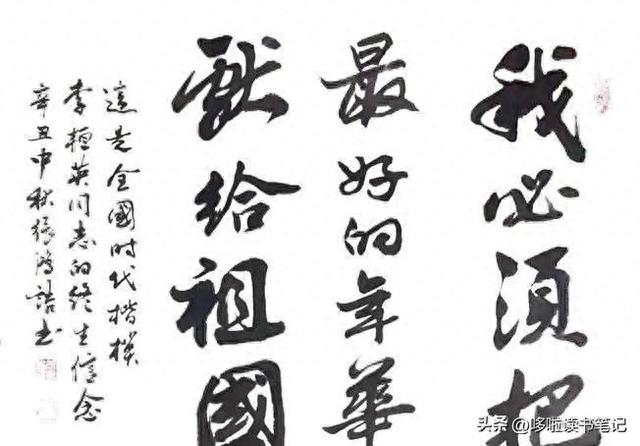 我必须把
最好的年華
獻给祖國
這是全國时代楷模
李桓英同志的终生信念
辛丑中秋張鴻語书
头条 @哆啦读书笔记